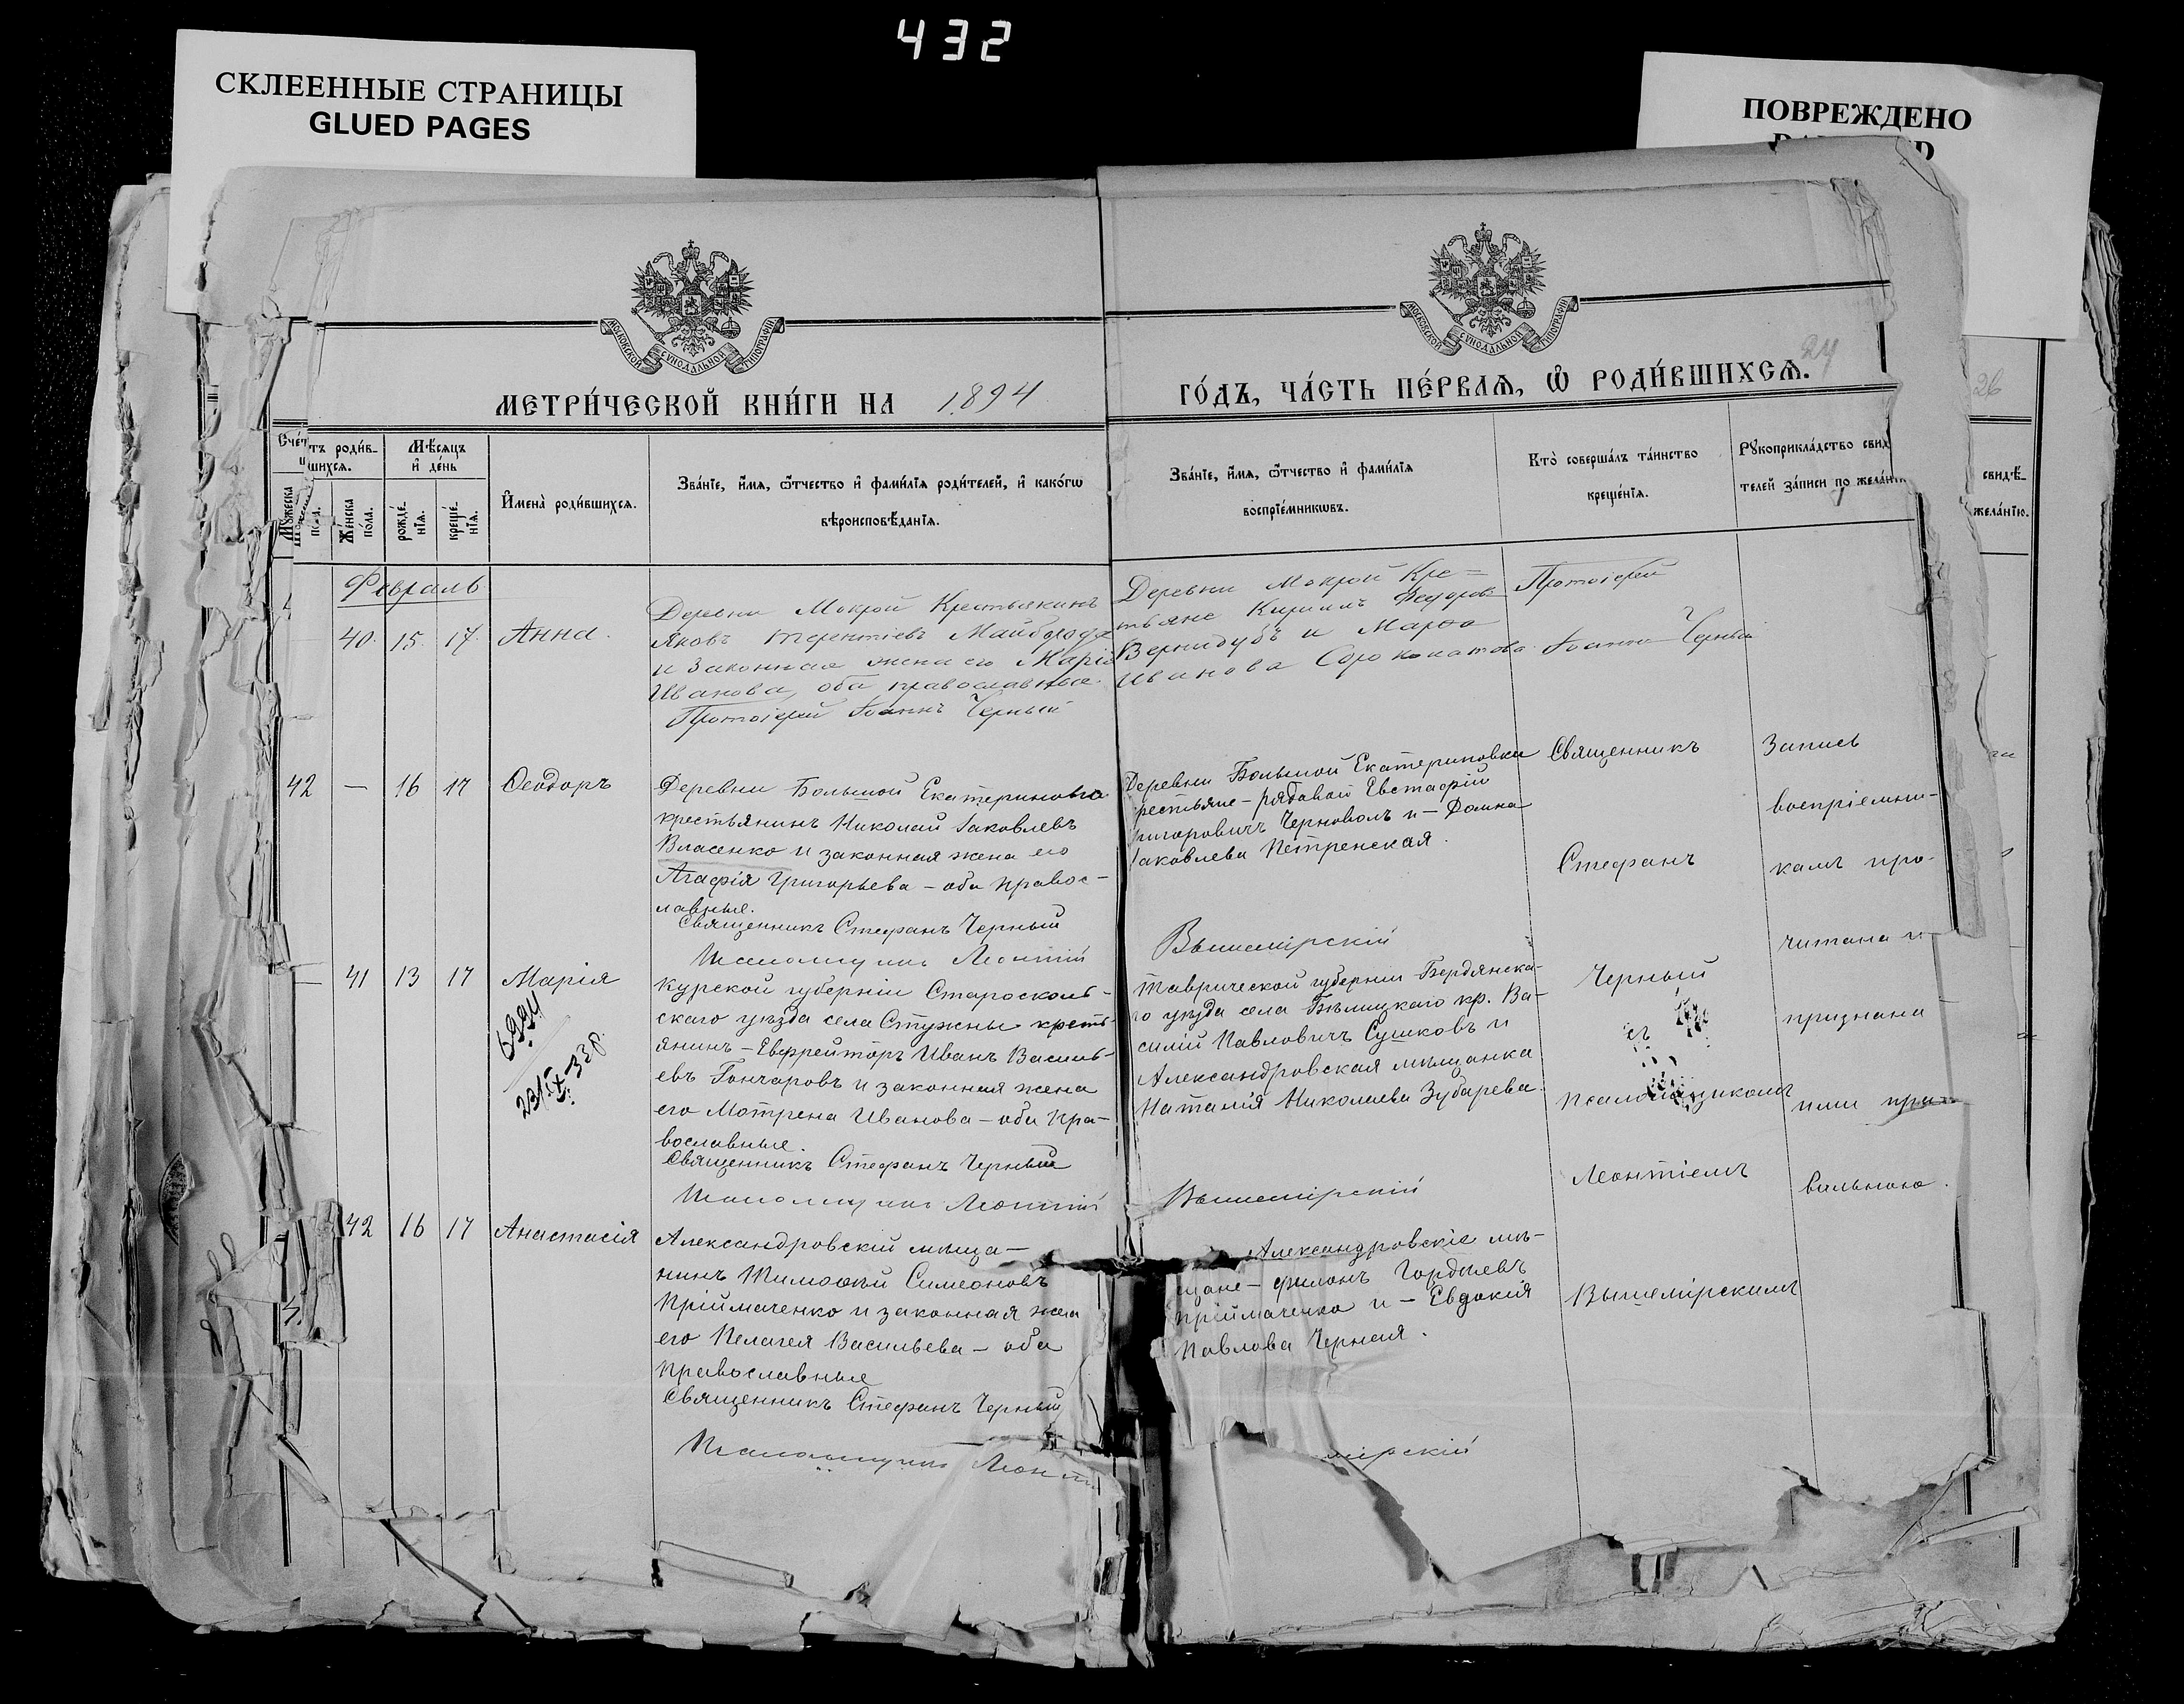 432
СКЛЕЕННЫЕ СТРАНИЦЫ
GLUED PAGES
ПОВРЕЖДЕНО
МОСКОВСКОЙ СѴНОДАЛЬНОЙ ТИПОГРАФІИ
МОСКОВСКОЙ СѴНОДАЛЬНОЙ ТИПОГРАФІИ
МЕТРИ́ЧЕСКОЙ КНИ́ГИ НА 1894
ГО́ДЪ, ЧА́СТЬ ПЕ́РВАѦ, Ѡ҆ РОДИ́ВШИХСѦ.
24
26
Счётъ роди́вшихсѧ.
Мѣ́сѧцъ и҆ де́нь
Му́жеска по́ла.
Же́нска по́ла.
рожде́нїѧ.
креще́нїѧ.
И҆мена̀ роди́вшихсѧ.
Зва́нїе, и҆́мѧ, ѻ҆́тчество и҆ фами́лїѧ роди́телей, и҆ како́гѡ
вѣроисповѣ́данїѧ.
Зва́нїе, и҆́мѧ, ѻ҆́тчество и҆ фами́лїѧ
воспрїе́мникѡвъ.
Кто̀ соверша́лъ та́инство
креще́нїѧ.
Рꙋкоприкла́дство свид
телей за́писи по жела́н
свидѣ́-
жела́нїю.
Февраль
40. 15. 17. Анна.
Деревни Мокрой Крестьянинъ
Яковъ Терентіевъ Майборода
и законная жена его Марія
Иванова, оба православные.
Протоіерей Іоаннъ Черный
Деревни Мокрой Кре=
стьяне Кириллъ Федоровъ
Вернидубъ и Марѳа
Иванова Сороконатова
Протоіерей
Іоаннъ Черный
42 — 16 17 Ѳеодоръ
Деревни Большой Екатериновки
крестьянинъ Николай Іаковлевъ
Власенко и законная жена его
Агафія Григорьева – оба правос-
лавные.
Священникъ Стефанъ Черный
Псаломщикъ Леонтій Вышемірскій
Деревни Большой Екатериновки
крестьяне – рядовой Евстафій
Григоровичъ Черноволъ и – Домна
Іаковлева Петренская.
Священникъ
Стефанъ
Черный
съ
Псаломщикомъ
Леонтіемъ
Вышемірскимъ
Запись
воспріемни-
камъ про-
читана и
признана
ими пра-
вильною.
— 41 13 17 Марія
6994
23/IX-33г.
Курской губерніи Староскольс-
скаго уѣзда села Стужны кресть-
янинъ – Ефрейторъ Иванъ Василь-
евъ Гончаровъ и законная жена
его Мотрена Иванова – оба пра-
вославные.
Священникъ Стефанъ Черный
Псаломщикъ Леонтій Вышемірскій
Таврической губерніи Бердянска-
го уѣзда села Бѣлицкаго кр. Ва-
силій Павловичъ Сушковъ и
Александровская мѣщанка
Наталія Николаева Зубарева.
42 16 17 Анастасія
Александровскій мѣща-
нинъ Тимоѳей Симеоновъ
Пріймаченко и законная жена
его Пелагея Васильева – оба
православные
Священникъ Стефанъ Черный
Псаломщикъ Леонті мірскій
Александровскіе мѣ-
щане – Филонъ Гордѣевъ
Пріймаченко и – Евдокія
Павлова Черная.